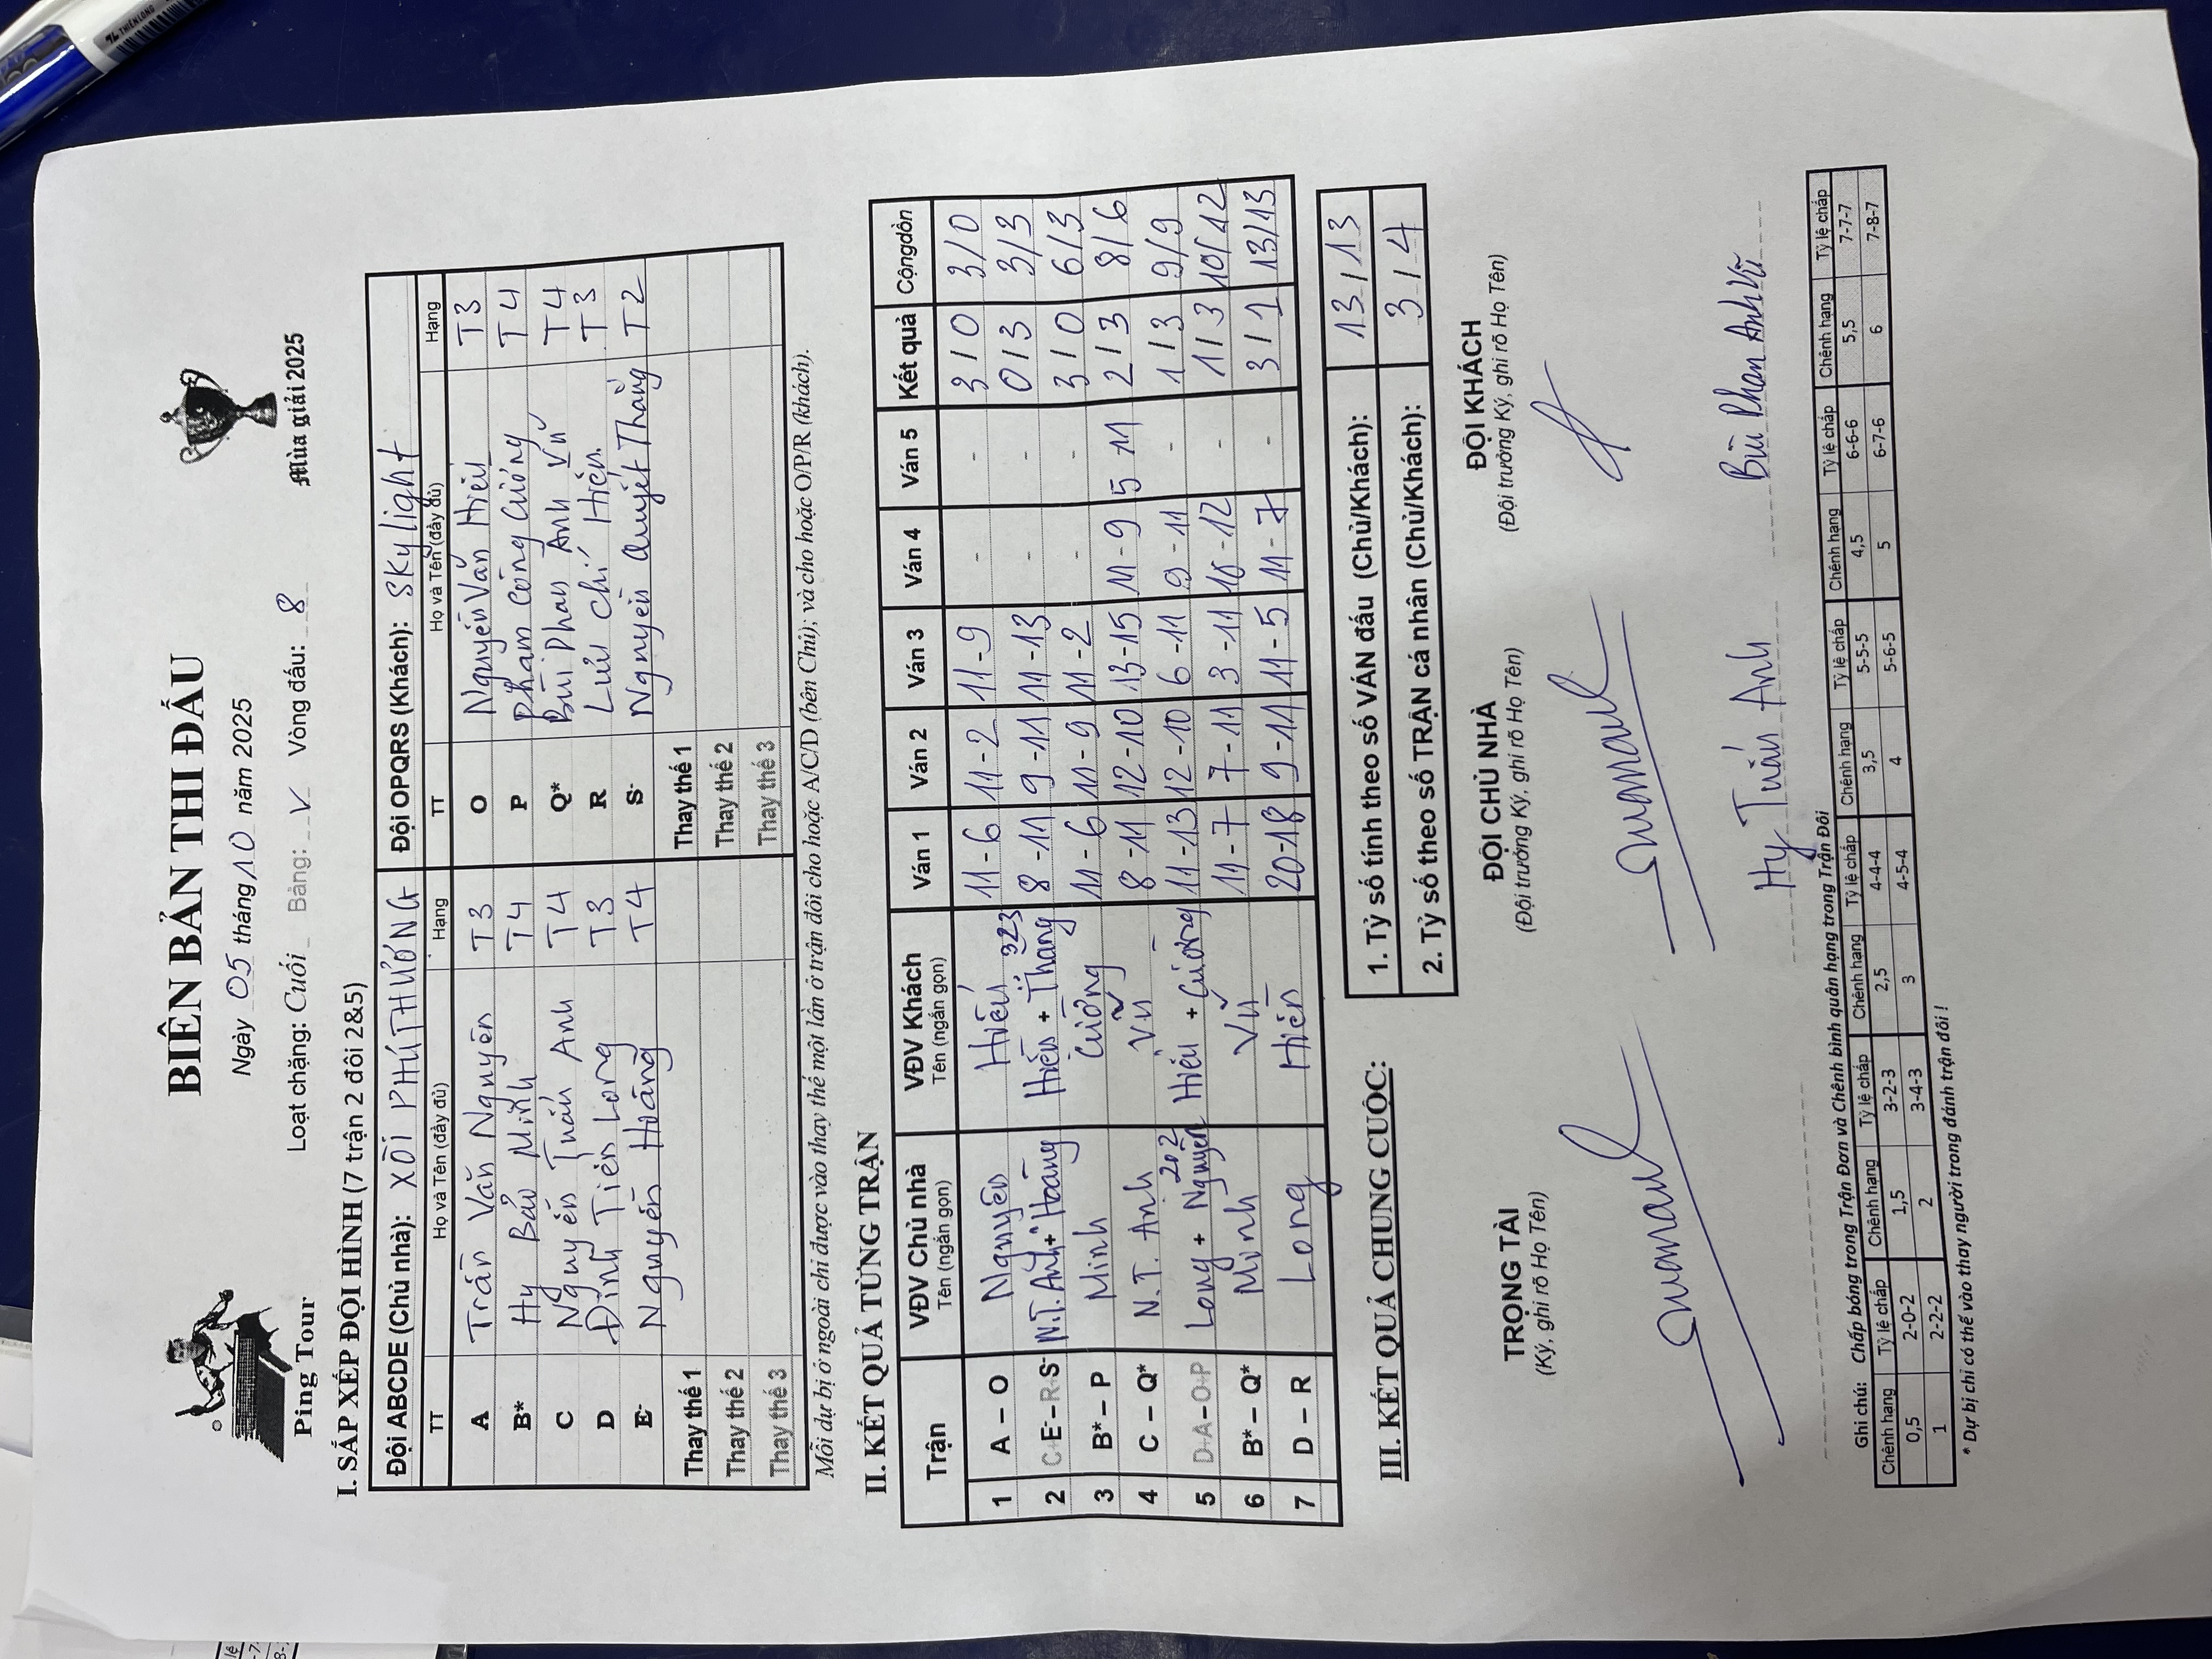 BIÊN BẢN THI ĐẤU
Ngày 05 tháng 10 năm 2025
Loạt chặng: Cuối Bảng: V Vòng đấu: 8
Ping Tour
Mùa giải 2025
I. SẮP XẾP ĐỘI HÌNH (7 trận 2 đôi 2&5)
Đội ABCDE (Chủ nhà): XÔI PHÚ THƯỢNG Đội OPQRS (Khách): Skylight
TT Họ và Tên (đầy đủ) Hạng TT Họ và Tên (đầy đủ) Hạng
A Trần Văn Nguyên T3 O Nguyễn Văn Hiếu T3
B* Hy Bảo Minh T4 P Phạm Công Cường T4
C Nguyễn Tuấn Anh T4 Q* Bùi Phan Anh Vũ T4
D Đinh Tiến Long T3 R Lưu Chí Hiền T3
E- Nguyễn Hoàng T4 S- Nguyễn Quyết Thắng T2
Thay thế 1 Thay thế 1
Thay thế 2 Thay thế 2
Thay thế 3 Thay thế 3
Mỗi dự bị ở ngoài chỉ được vào thay thế một lần ở trận đôi cho hoặc A/C/D (bên Chủ); và cho hoặc O/P/R (khách).
II. KẾT QUẢ TỪNG TRẬN
Trận VĐV Chủ nhà Tên (ngắn gọn) VĐV Khách Tên (ngắn gọn) Ván 1 Ván 2 Ván 3 Ván 4 Ván 5 Kết quả Cộngdồn
1 A – O Nguyên Hiếu 11-6 11-2 11-9 - - 3/0 3/0
2 C+E-–R+S- N.T.Anh+Hoàng Hiền + Thắng 323 8-11 9-11 11-13 - - 0/3 3/3
3 B* – P Minh Cường 11-6 11-9 11-2 - - 3/0 6/3
4 C – Q* N.T. Anh Vũ 8-11 12-10 13-15 11-9 5 11 2/3 8/6
5 D+A–O+P Long + Nguyên 202 Hiếu + Cường 11-13 12-10 6-11 9-11 - 1/3 9/9
6 B* – Q* Minh Vũ 11-7 7-11 3-11 10-12 - 1/3 10/12
7 D – R Long Hiền 20-18 9-11 11-5 11-7 - 3/1 13/13
III. KẾT QUẢ CHUNG CUỘC:
1. Tỷ số tính theo số VÁN đấu (Chủ/Khách): 13/13
2. Tỷ số theo số TRẬN cá nhân (Chủ/Khách): 3/4
TRỌNG TÀI ĐỘI CHỦ NHÀ ĐỘI KHÁCH
(Ký, ghi rõ Họ Tên) (Đội trưởng Ký, ghi rõ Họ Tên) (Đội trưởng Ký, ghi rõ Họ Tên)
Hy Tuấn Anh Bùi Phan Anh Vũ
Ghi chú: Chấp bóng trong Trận Đơn và Chênh bình quân hạng trong Trận Đôi
Chênh hạng Tỷ lệ chấp Chênh hạng Tỷ lệ chấp Chênh hạng Tỷ lệ chấp Chênh hạng Tỷ lệ chấp Chênh hạng Tỷ lệ chấp Chênh hạng Tỷ lệ chấp
0,5 2-0-2 1,5 3-2-3 2,5 4-4-4 3,5 5-5-5 4,5 6-6-6 5,5 7-7-7
1 2-2-2 2 3-4-3 3 4-5-4 4 5-6-5 5 6-7-6 6 7-8-7
* Dự bị chỉ có thể vào thay người trong đánh trận đôi !
THIÊN LONG